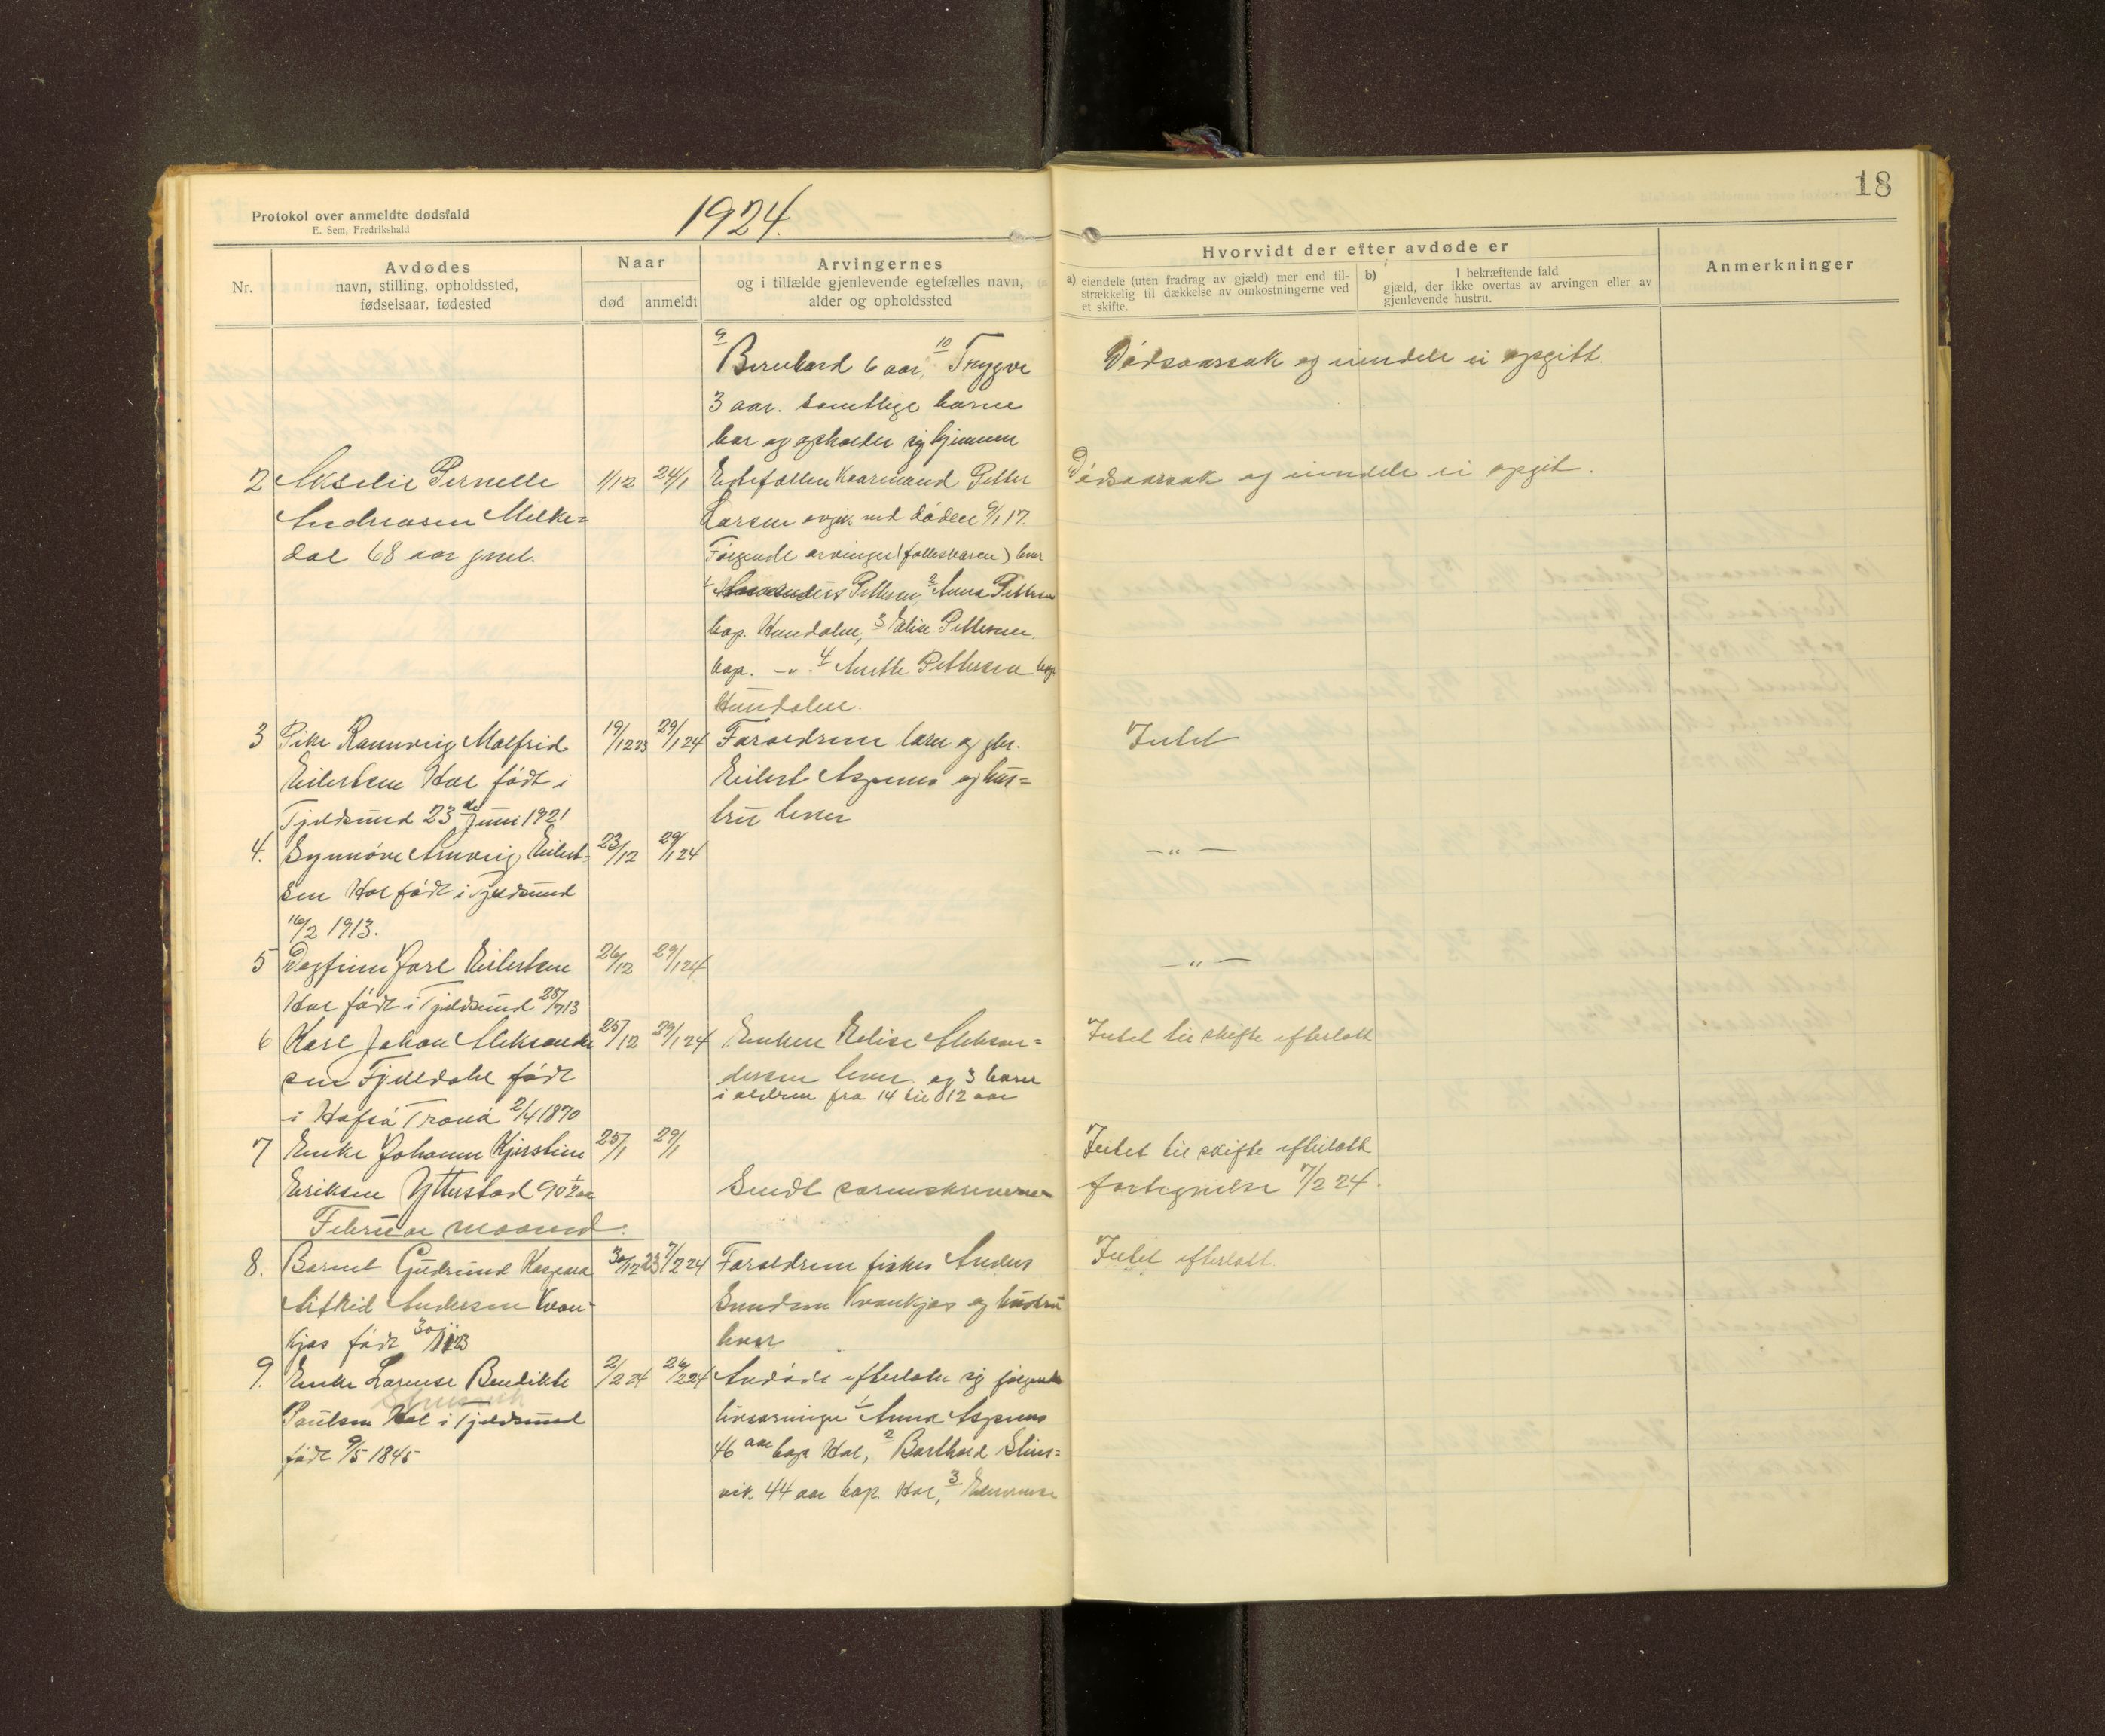 18
Protokol over anmeldte dødsfald
E. Sem, Fredrikshald
1924.
Nr.
Avdødes
navn, stilling, opholdssted,
fødselsaar, fødested
Naar
død
anmeldt
Arvingernes
og i tilfælde gjenlevende egtefælles navn,
alder og opholdssted
Hvorvidt der efter avdøde er
a) eiendele (uten fradrag av gjæld) mer end til-
strækkelig til dækkelse av omkostningerne ved
et skifte.
b) I bekræftende fald
gjæld, der ikke overtas av arvingen eller av
gjenlevende hustru.
Anmerkninger
9 Bernhard 6 aar, 10 Trygve
3 aar. Samtlige barne
bor og opholder sig hjemme
Dødsaarsak og eiendele ei opgitt.
2 Akselie Pernelle 1/12 24/1 Egtefællen Kaarmand Petter
Andreasen Melke=
dal 68 aar gml.
Larsen avgik ved døden 9/1 17.
Følgende arvinger (fellesbaren) lever
Pettersen, 2 Anna Pettersen
bop. Hundalen, 3 Elise Pettersen
bop. -"- 4 Anette Pettersen bop
Hundalen.
Dødsaarsak og eiendele ei opgit.
3 Pike Rannveig Malfrid 19/12 23 29/1 24 Foreldrene lærer og gbr.
Eilertsen Hol født i
Tjeldsund 23de Juni 1921
Eilert Aspenes og hus=
tru lever
Intet
4. Synnøve Arnveig Eilert- 23/12 29/1 24
sen Hol født i Tjeldsund
16/2 1913.
-"-
5 Dagfinn Jarl Eilertsen 26/12 29/1 24
Hol født i Tjeldsund 25/7 13
-"-
6 Karl Johan Aleksander 25/12 29/1 24 Enken Elise Aleksan=
sen Fjelldahl født
i Hofså Tranö 2/4 1870
dersen lever og 3 barn
i alderen fra 14 til 12 aar
Intet til skifte efterlatt
7 Enke Johanna Kjerstine 25/1 29/1
Eriksen Yttestad 90 1/2 aar
Sendt sorenskriveren
Intet til skifte efterlatt
fortegnelse 7/2 24.
Februar maaned.
8. Barnet Gudrund Kaspara 30/12 23 7/2 24 Foreldrene fisker Anders
Astrid Andersen Kvan-
kjos født 30/11 23
Kvankjos og hustru
lever
Intet efterlatt
9. Enke Larense Bendikte 2/2 24 26/2 24 Avdøde efterlater sig følgende
Paulsen Hol i Tjeldsund
født 9/5 1845
livsarvinger 1 Anna Aspenes
46 aar bop. Hol, 2 Barthold Stens=
vik 44 aar bop. Hol, 3